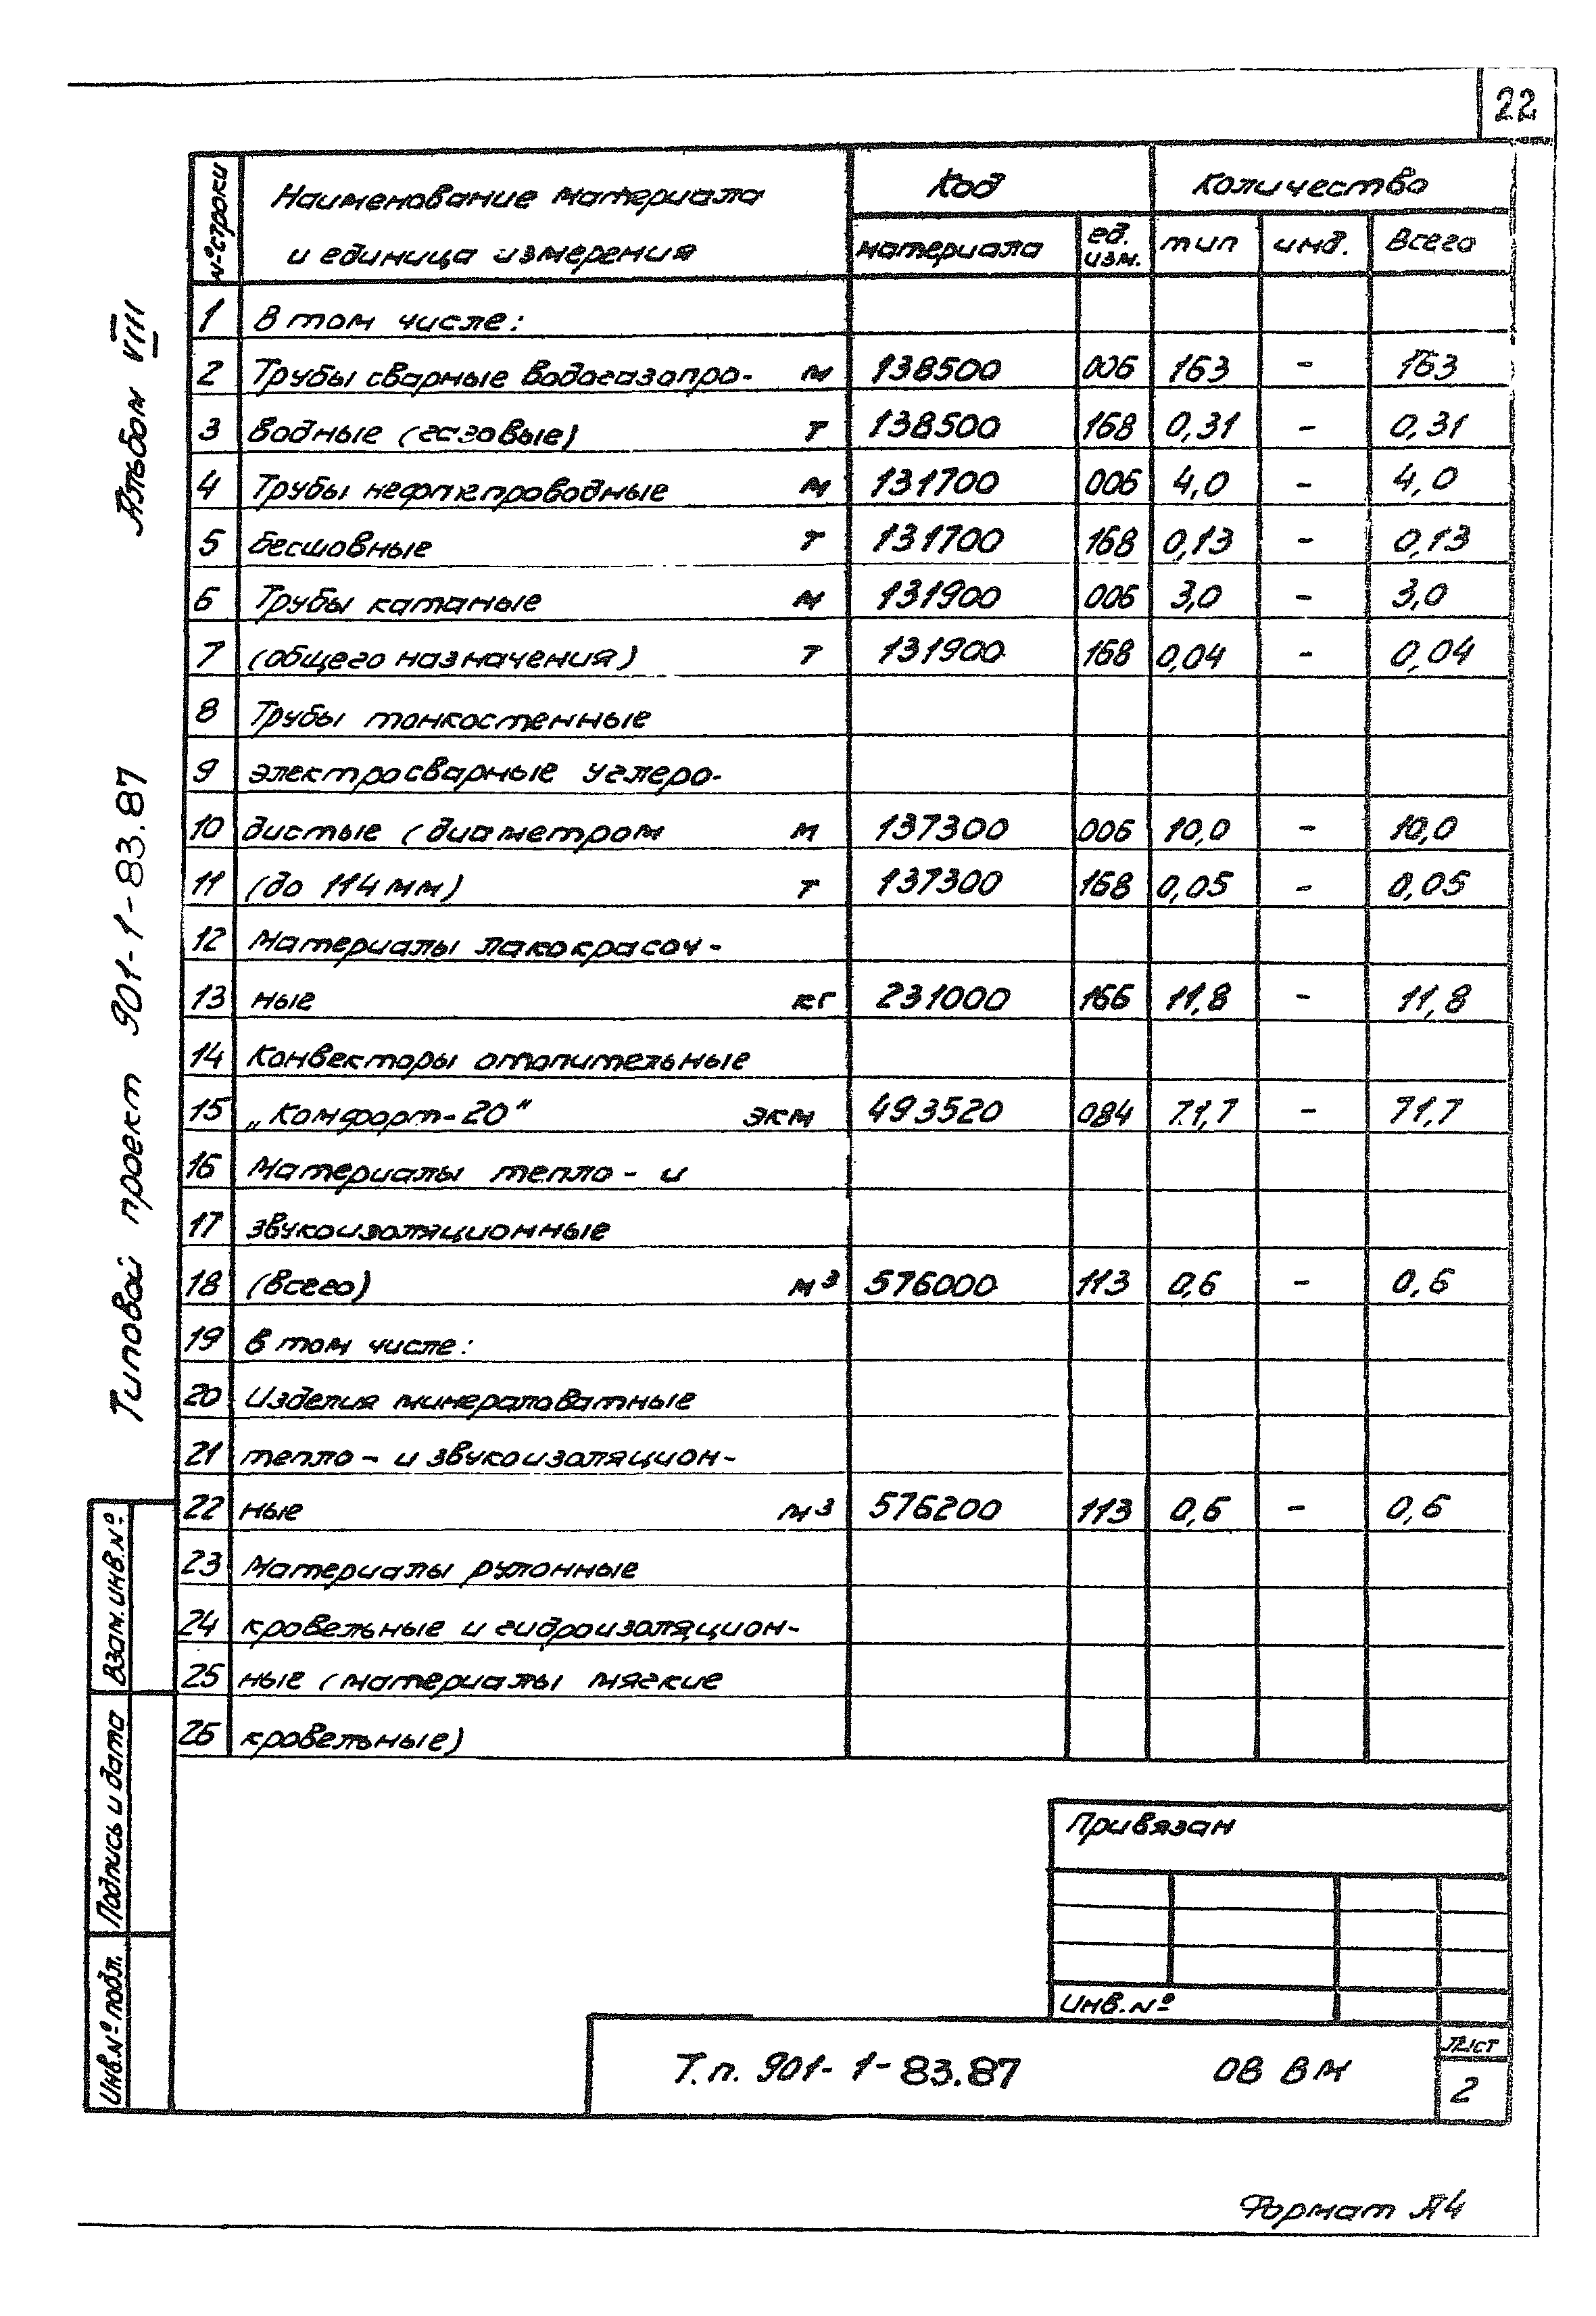 22
Альбом VIII
Типовой проект 901-1-83.87
№ строки Наименование материала и единица измерения Код Количество
материала ед. изм. тип инд. Всего
1 В том числе:
2 Трубы сварные водогазопро- м 138500 006 163 - 163
3 водные (газовые) т 138500 168 0,31 - 0,31
4 Трубы нефтепроводные м 131700 006 4,0 - 4,0
5 бесшовные т 131700 168 0,13 - 0,13
6 Трубы катаные м 131900 006 3,0 - 3,0
7 (общего назначения) т 131900 168 0,04 - 0,04
8 Трубы тонкостенные
9 электросварные углеро-
10 дистые (диаметром м 137300 006 10,0 - 10,0
11 (до 114 мм) т 137300 168 0,05 - 0,05
12 Материалы лакокрасоч-
13 ные кг 231000 166 11,8 - 11,8
14 Конвекторы отопительные
15 „Комфорт-20" экм 493520 084 71,7 - 71.7
16 Материалы тепло- и
17 звукоизоляционные
18 (всего) м³ 576000 113 0,6 - 0,6
19 в том числе:
20 Изделия минераловатные
21 тепло- и звукоизоляцион-
22 ные м³ 576200 113 0,6 - 0,6
23 Материалы рулонные
24 кровельные и гидроизоляцион-
25 ные (материалы мягкие
26 кровельные)
Взам. инв. №
Подпись и дата
Инв. № подл.
Привязан
Инв. №
Т.п. 901-1-83.87 ОВ ВМ
Лист
2
Формат А4